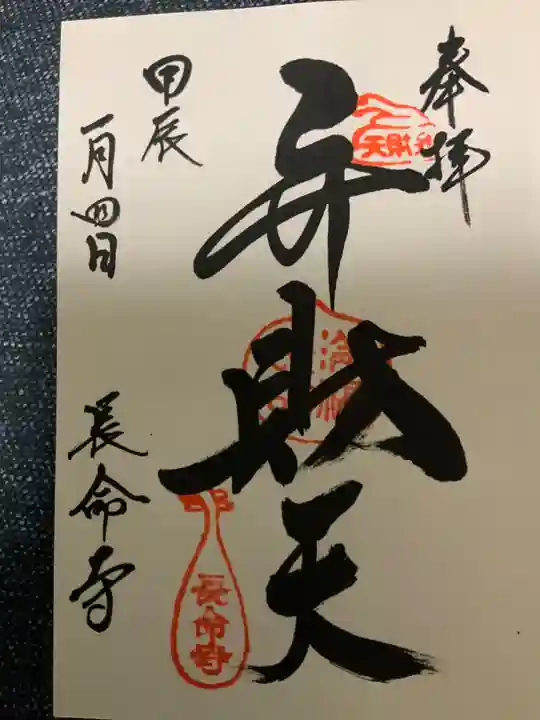 奉拝
弁財天
甲辰
一月四日
長命寺
弁財天
長命寺